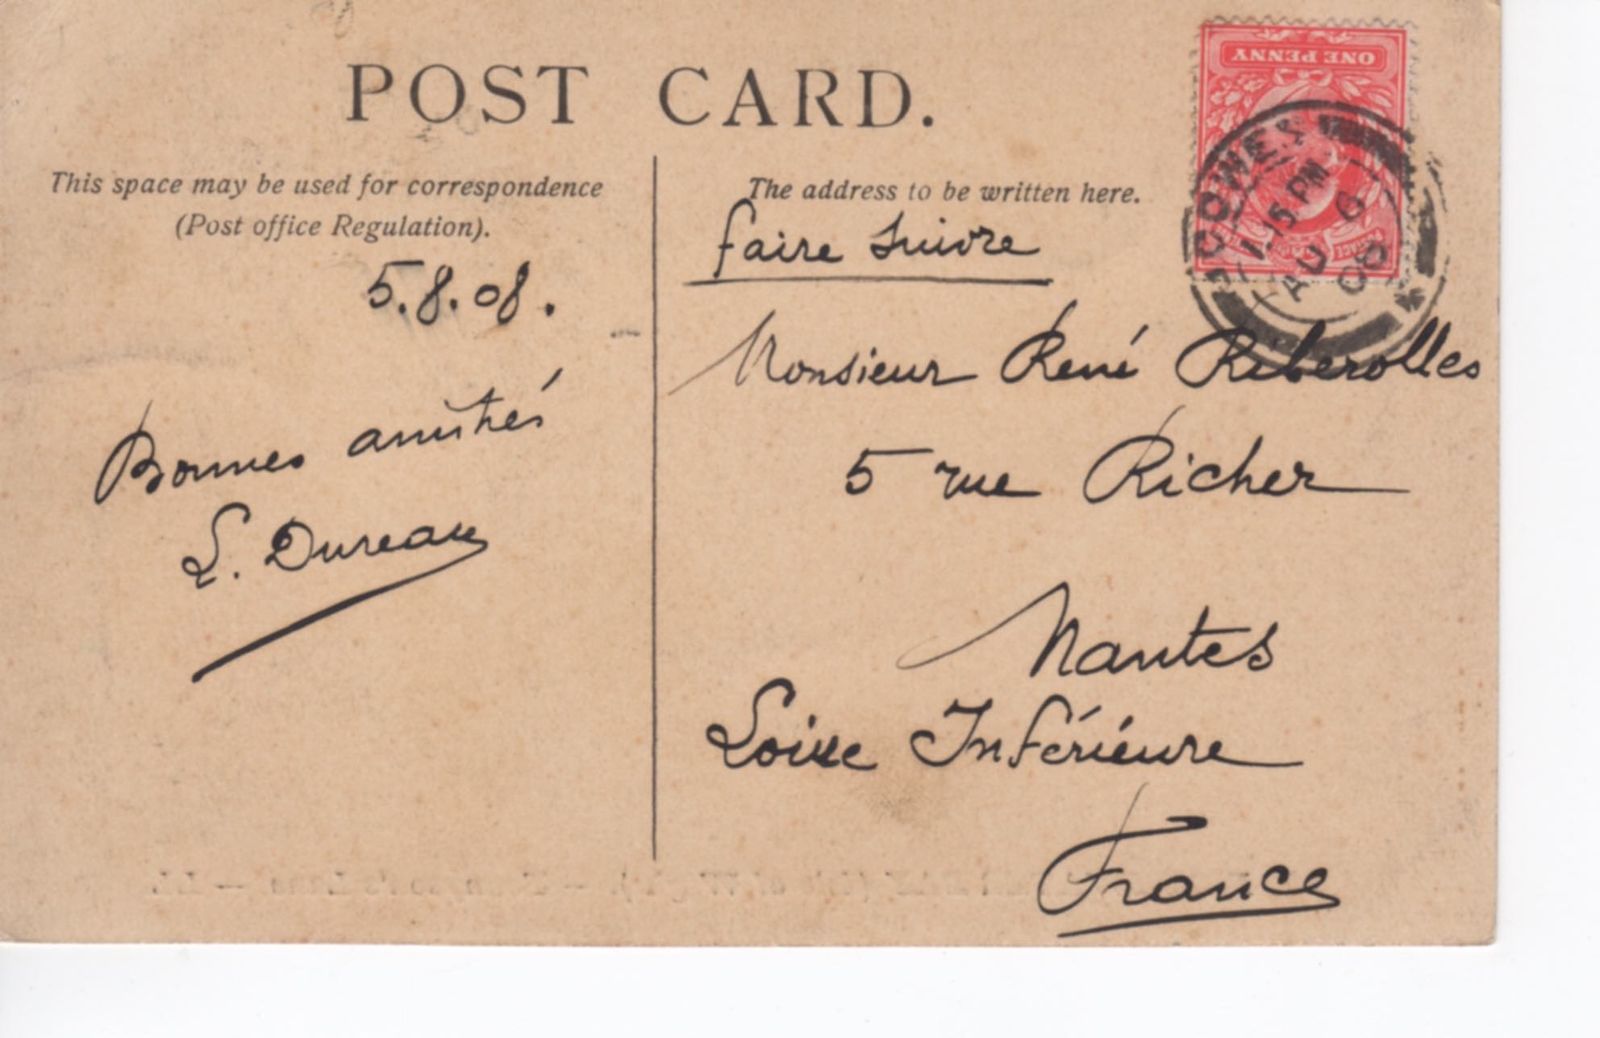 POST CARD.
This space may be used for correspondence
(Post office Regulation).
5.8.08.
Bonnes amitiés
L. Dureau
The address to be written here.
faire suivre
Monsieur René Riberolles
5 rue Richer
Nantes
Loire Inférieure
France
ONE PENNY
COWES
1.15 PM
AU 6
08